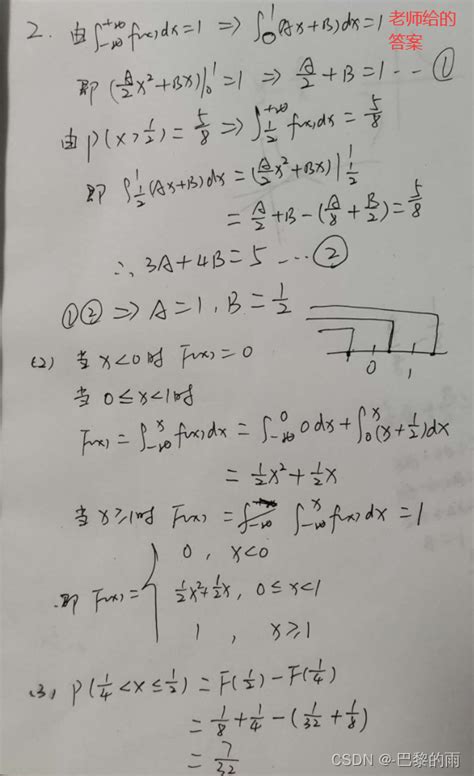 2. 由∫_{-∞}^{+∞} f(x)dx=1 ⇒ ∫_0^1 (Ax+B)dx=1
老师给的
答案
即 (A/2 x²+Bx)|_0^1=1 ⇒ A/2+B=1 … ①
由P(X>1/2)=5/8 ⇒ ∫_{1/2}^{+∞} f(x)dx=5/8
即 ∫_{1/2}^1 (Ax+B)dx=(A/2 x²+Bx)|_{1/2}^1
=A/2+B-(A/8+B/2)=5/8
∴ 3A+4B=5 … ②
①② ⇒ A=1, B=1/2
0 1
(2) 当 x<0时 F(x)=0
当 0≤x<1时
F(x)=∫_{-∞}^x f(x)dx=∫_{-∞}^0 0dx+∫_0^x (x+1/2)dx
=1/2x²+1/2x
当 x≥1时 F(x)=∫_{-∞}^x f(x)dx=1
即 F(x)={
0, x<0
1/2x²+1/2x, 0≤x<1
1, x≥1
(3) P(1/4<x≤1/2)=F(1/2)-F(1/4)
=1/8+1/4-(1/32+1/8)
=7/32
CSDN @-巴黎的雨